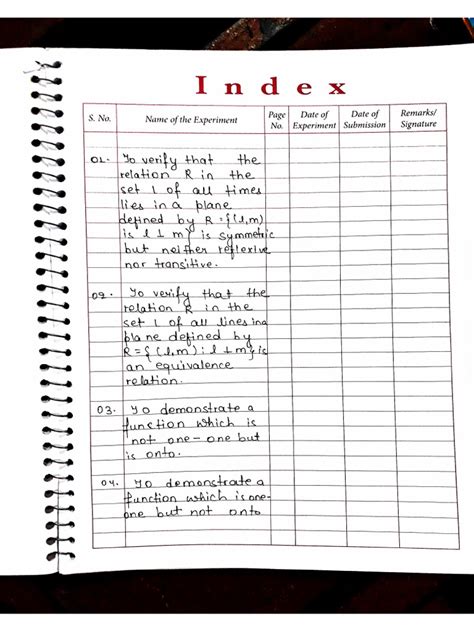 Index
S. No. Name of the Experiment Page No. Date of Experiment Date of Submission Remarks/ Signature
01. To verify that the
relation R in the
set L of all times
lies in a plane
defined by R = {(l,m)
is l ⊥ m} is symmetric
but neither reflexive
nor transitive.
02. To verify that the
relation R in the
set L of all lines in a
plane defined by
R = { (l,m) : l ⊥ m} is
an equivalence
relation.
03. To demonstrate a
function which is
not one-one but
is onto.
04. To demonstrate a
function which is one-
one but not onto